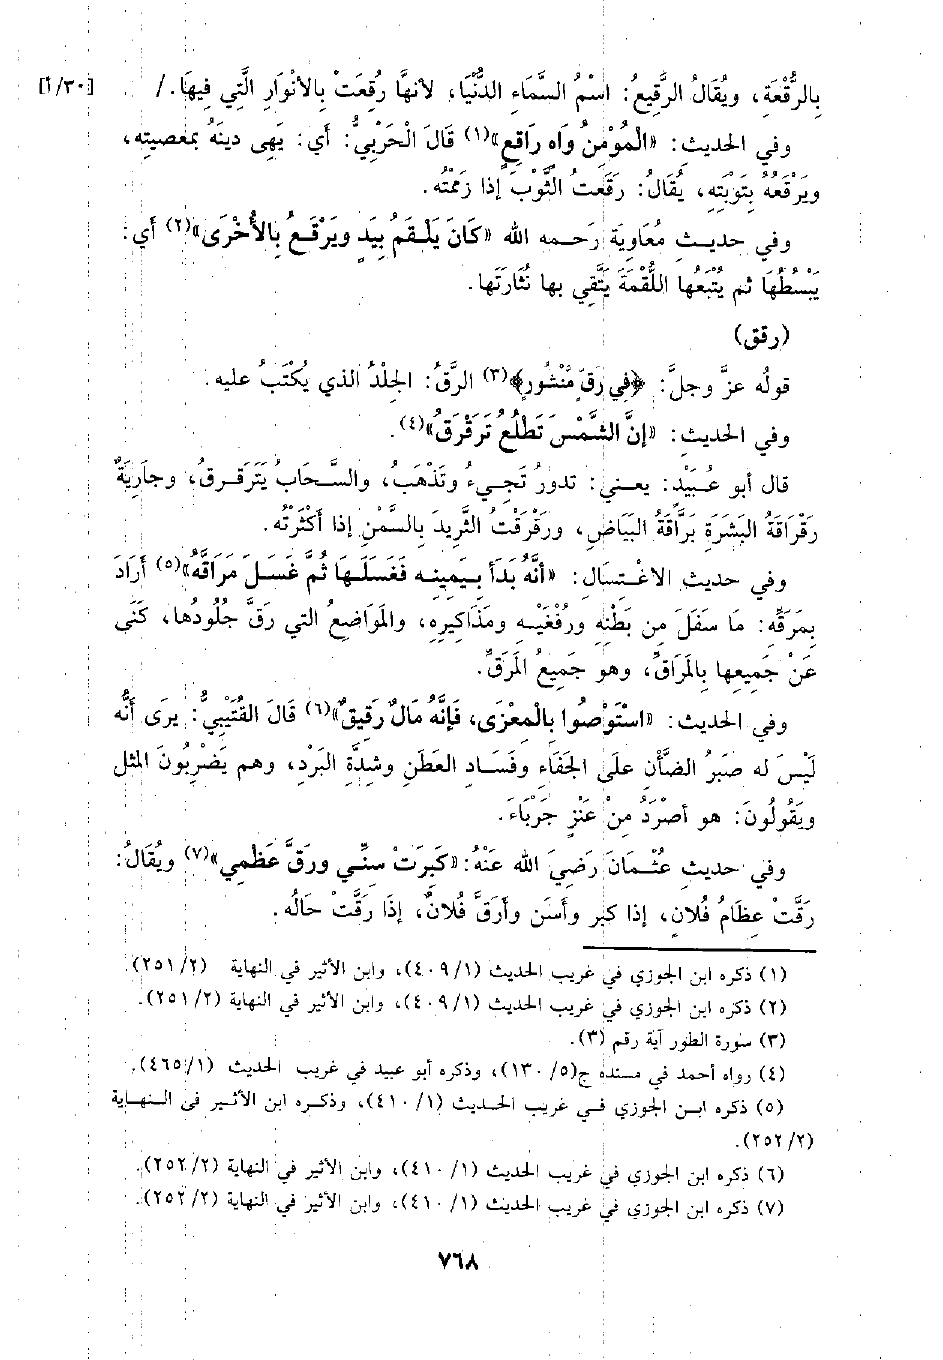 بالرُّقْعَةِ، ويُقَالُ الرقيعُ: اسْمُ السَّمَاءِ الدُّنْيَا، لأنهَّا رُقِعَتْ بِالأنْوارِ الَّتِي فِيهَا. / [٣٠/أ]
وفي الحديث: «الْمُؤْمِنُ وَاهٍ رَاقِعٍ»(١) قَالَ الْحَرْبِيُّ: أي: يَهِى دينَهُ بمَعصيتِه،
ويَرْقَعُهُ بِتَوْبَتِهِ، يُقَالُ: رَقَعتُ الثَّوْبَ إذا رَممْتُه.
وفي حديث مُعَاوِيَةَ رَحمه الله «كَانَ يَلْقَمُ بِيَدٍ ويَرْقَعُ بِالأُخْرَى»(٢) أي:
يَبْسُطُهَا ثم يُتْبَعُها اللُّقْمَةَ يَتَّقِي بها نُثَارَتَها.
(رقق)
قولُه عزَّ وجلَّ: ﴿فِي رَقٍّ مَّنْشُورٍ﴾(٣) الرَّقُ: الجِلْدُ الذي يُكْتَبُ عليه.
وفي الحديث: «إنَّ الشَّمْسَ تَطْلُعُ تَرَقْرَقُ»(٤).
قال أبو عُبَيْدٍ: يعني: تدورُ تَجِيءُ وتَذْهَبُ، والسَّحَابُ يَتَرَقرقُ، وجَارِيَةٌ
رَقْرَاقَةُ البَشَرَةِ بَرَّاقَةُ البَيَاضِ، ورَقْرَقْتُ الثَّرِيدَ بالسَّمْنِ إذا أكْثَرْتَه.
وفي حديث الاغْتِسَالِ: «أنَّهُ بَدَأ بِيَمِينِه فَغَسَلَهَا ثُمَّ غَسَلَ مَرَاقَّهُ»(٥) أرَادَ
بِمَرَقِّه: مَا سَفَلَ مِن بَطْنِهِ ورُفْغَيْهِ ومَذَاكِيرِه، والمَوَاضِعُ التي رَقَّ جُلُودُها، كَنَى
عَنْ جَمِيعِها بِالمَرَاقِّ، وهو جَمِيعُ المَرَقِّ.
وفي الحديث: «اسْتَوْصُوا بِالْمعْزَى، فَإنَّهُ مَالٌ رَقِيقٌ»(٦) قَالَ القُتَيْبِيُّ: يرَى أنَّه
لَيْسَ له صَبرُ الضَأنِ علَى الجَفَاءِ وفَسَادِ العَطَنِ وشِدَّةِ البَرْدِ، وهم يَضْرِبُونَ المثل
ويَقُولُونَ: هو أصْرَدُ مِنْ عَنْزٍ جَرْبَاءَ.
وفي حديث عُثْمَانَ رَضِيَ الله عَنْهُ: «كَبرَتْ سنِّي ورَقَّ عَظْمِي»(٧) ويُقَالُ:
رَقَّتْ عِظَامُ فُلانٍ، إذا كبر وأسَن وأرَقَّ فُلانٌ، إذَا رَقَّتْ حَالُه.
(١) ذكره ابن الجوزي في غريب الحديث (٤٠٩/١)، وابن الأثير في النهاية (٢٥١/٢).
(٢) ذكره ابن الجوزي في غريب الحديث (٤٠٩/١)، وابن الأثير في النهاية (٢٥١/٢).
(٣) سورة الطور آية رقم (٣).
(٤) رواه أحمد في مسنده ج(١٣٠/٥)، وذكره أبو عبيد في غريب الحديث (٤٦٥/١).
(٥) ذكره ابن الجوزي في غريب الحديث (٤١٠/١)، وذكره ابن الأثير في النهاية
(٢٥٢/٢).
(٦) ذكره ابن الجوزي في غريب الحديث (٤١٠/١)، وابن الأثير في النهاية (٢٥٢/٢).
(٧) ذكره ابن الجوزي في غريب الحديث (٤١٠/١)، وابن الأثير في النهاية (٢٥٢/٢).
٧٦٨